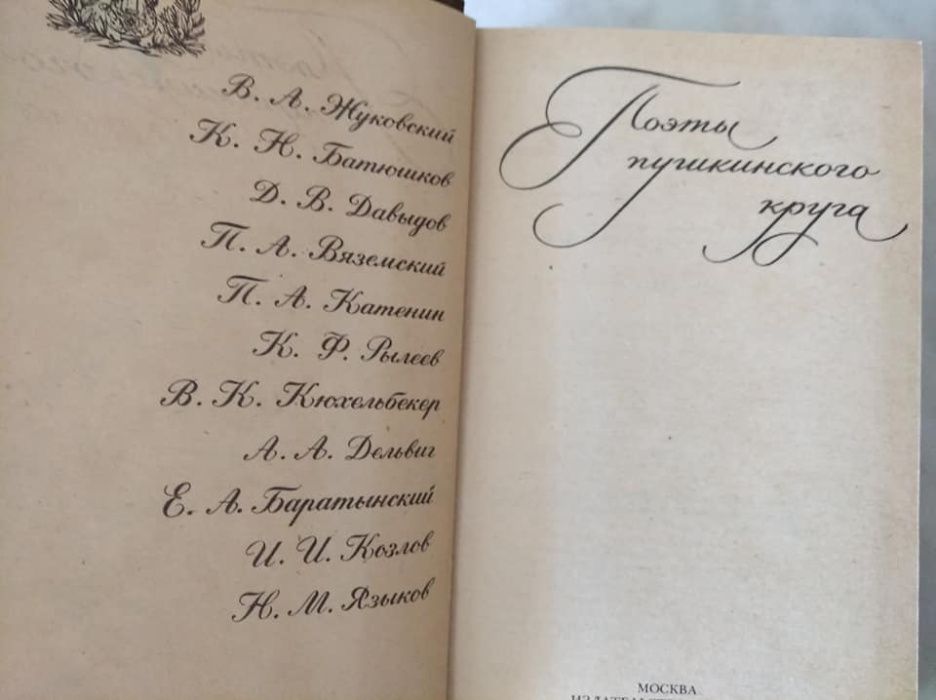 В. А. Жуковский
К. Н. Батюшков
Д. В. Давыдов
П. А. Вяземский
П. А. Катенин
К. Ф. Рылеев
В. К. Кюхельбекер
А. А. Дельвиг
Е. А. Баратынский
И. И. Козлов
Н. М. Языков
Поэты
пушкинского
круга
МОСКВА